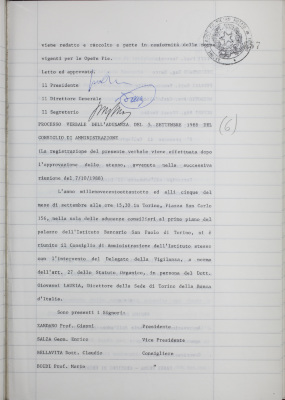 viene redatto e raccolto a parte in conformità delle norme
vigenti per le Opere Pie.
Letto ed approvato.
Il Presidente
Il Direttore Generale
Il Segretario
(6)
PROCESSO VERBALE DELL'ADUNANZA DEL 5 SETTEMBRE 1980 DEL
CONSIGLIO DI AMMINISTRAZIONE
(La registrazione del presente verbale viene effettuata dopo
l'approvazione dello stesso, avvenuta nella successiva
riunione del 7/10/1980)
L'anno millenovecentoottanta ed alli cinque del
mese di settembre alle ore 15,30 in Torino, Piazza San Carlo
156, nella sala delle adunanze consiliari al primo piano del
palazzo dell'Istituto Bancario San Paolo di Torino, si è
riunito il Consiglio di Amministrazione dell'Istituto stesso
con l'intervento del Delegato della Vigilanza, a norma
dell'art. 27 dello Statuto Organico, in persona del Dott.
Giovanni LAURIA, Direttore della Sede di Torino della Banca
d'Italia.
Sono presenti i Signori:
ZANDANO Prof. Gianni Presidente
SALZA Gaom. Enrico Vice Presidente
BELLAVITA Claudio Consigliere
Prof. Mario "